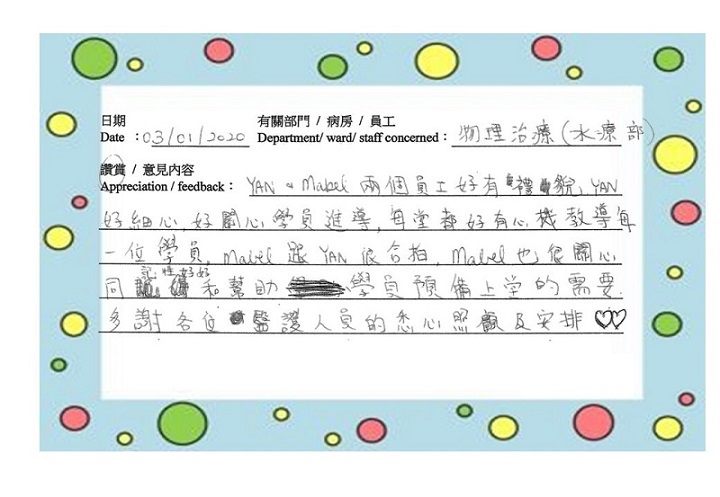 日期 有關部門 / 病房 / 員工
Date : 03/01/2020 Department/ ward/ staff concerned : 物理治療(水療部)
讚賞 / 意見內容
Appreciation / feedback : YAN & Mabel 兩個員工好有禮貌, YAN
好細心, 好關心學員進導, 每堂都好有心機教導每
一位學員, Mabel 跟 YAN 很合拍, Mabel也很關心
記性好好
同 和幫助 學員預備上堂的需要
多謝各位 醫護人員的悉心照顧及安排 ♡♡